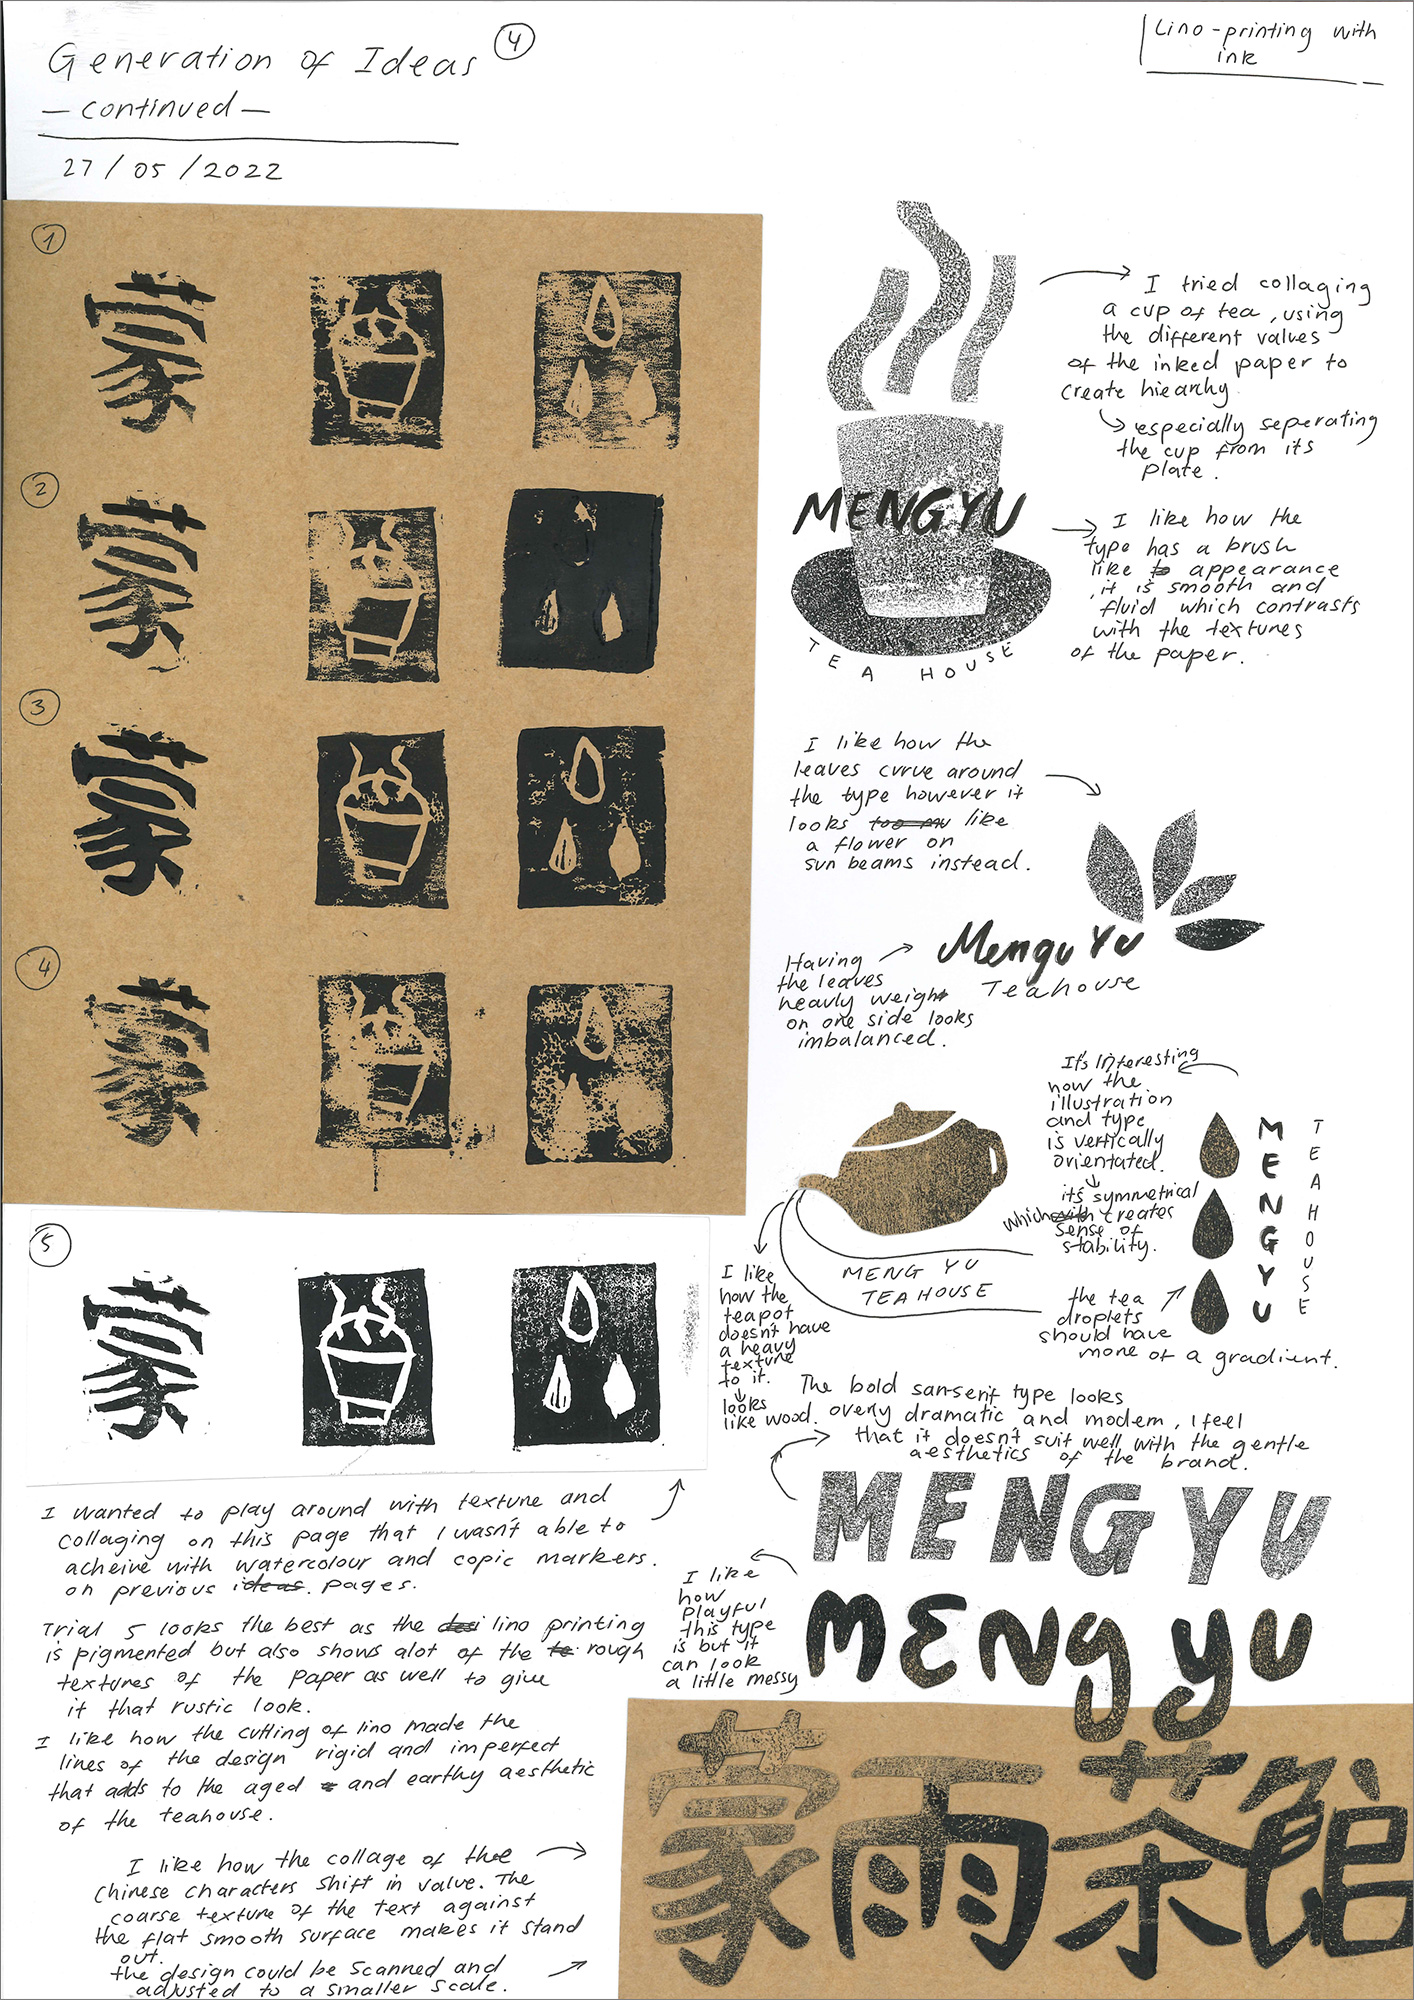 Generation of Ideas 4
— continued —
27 / 05 / 2022
Lino-printing with
ink
1
2
3
4
5
I tried collaging
a cup of tea, using
the different values
of the inked paper to
create hiearhy
especially seperating
the cup from its
plate.
MENGYU
TEA HOUSE
I like how the
type has a brush
like appearance
, it is smooth and
fluid which contrasts
with the textures
of the paper.
I like how the
leaves curve around
the type however it
looks like
a flower on
sun beams instead.
Mengu Yu
Teahouse
Having
the leaves
heavly weight
on one side looks
imbalanced.
It's interesting
how the
illustration
and type
is vertically
orientated.
its symmetrical
which creates
sense of
stability.
MENGYU
TEAHOUSE
the tea
droplets
should have
more of a gradient.
MENG YU
TEA HOUSE
I like
how the
teapot
doesn't have
a heavy
texture
to it.
looks
like wood.
The bold san-serif type looks
overly dramatic and modern, I feel
that it doesn't suit well with the gentle
aesthetics of the brand.
MENG YU
I like
how
playful
this type
is but it
can look
a little messy
MENg yu
蒙雨茶館
I wanted to play around with texture and
collaging on this page that I wasn't able to
acheive with watercolour and copic markers.
on previous ideas. pages.
Trial 5 looks the best as the lino printing
is pigmented but also shows alot of the rough
textures of the paper as well to give
it that rustic look.
I like how the cutting of lino made the
lines of the design rigid and imperfect
that adds to the aged and earthy aesthetic
of the teahouse.
I like how the collage of the
Chinese characters shift in value. The
coarse texture of the text against
the flat smooth surface makes it stand
out.
the design could be scanned and
adjusted to a smaller scale.